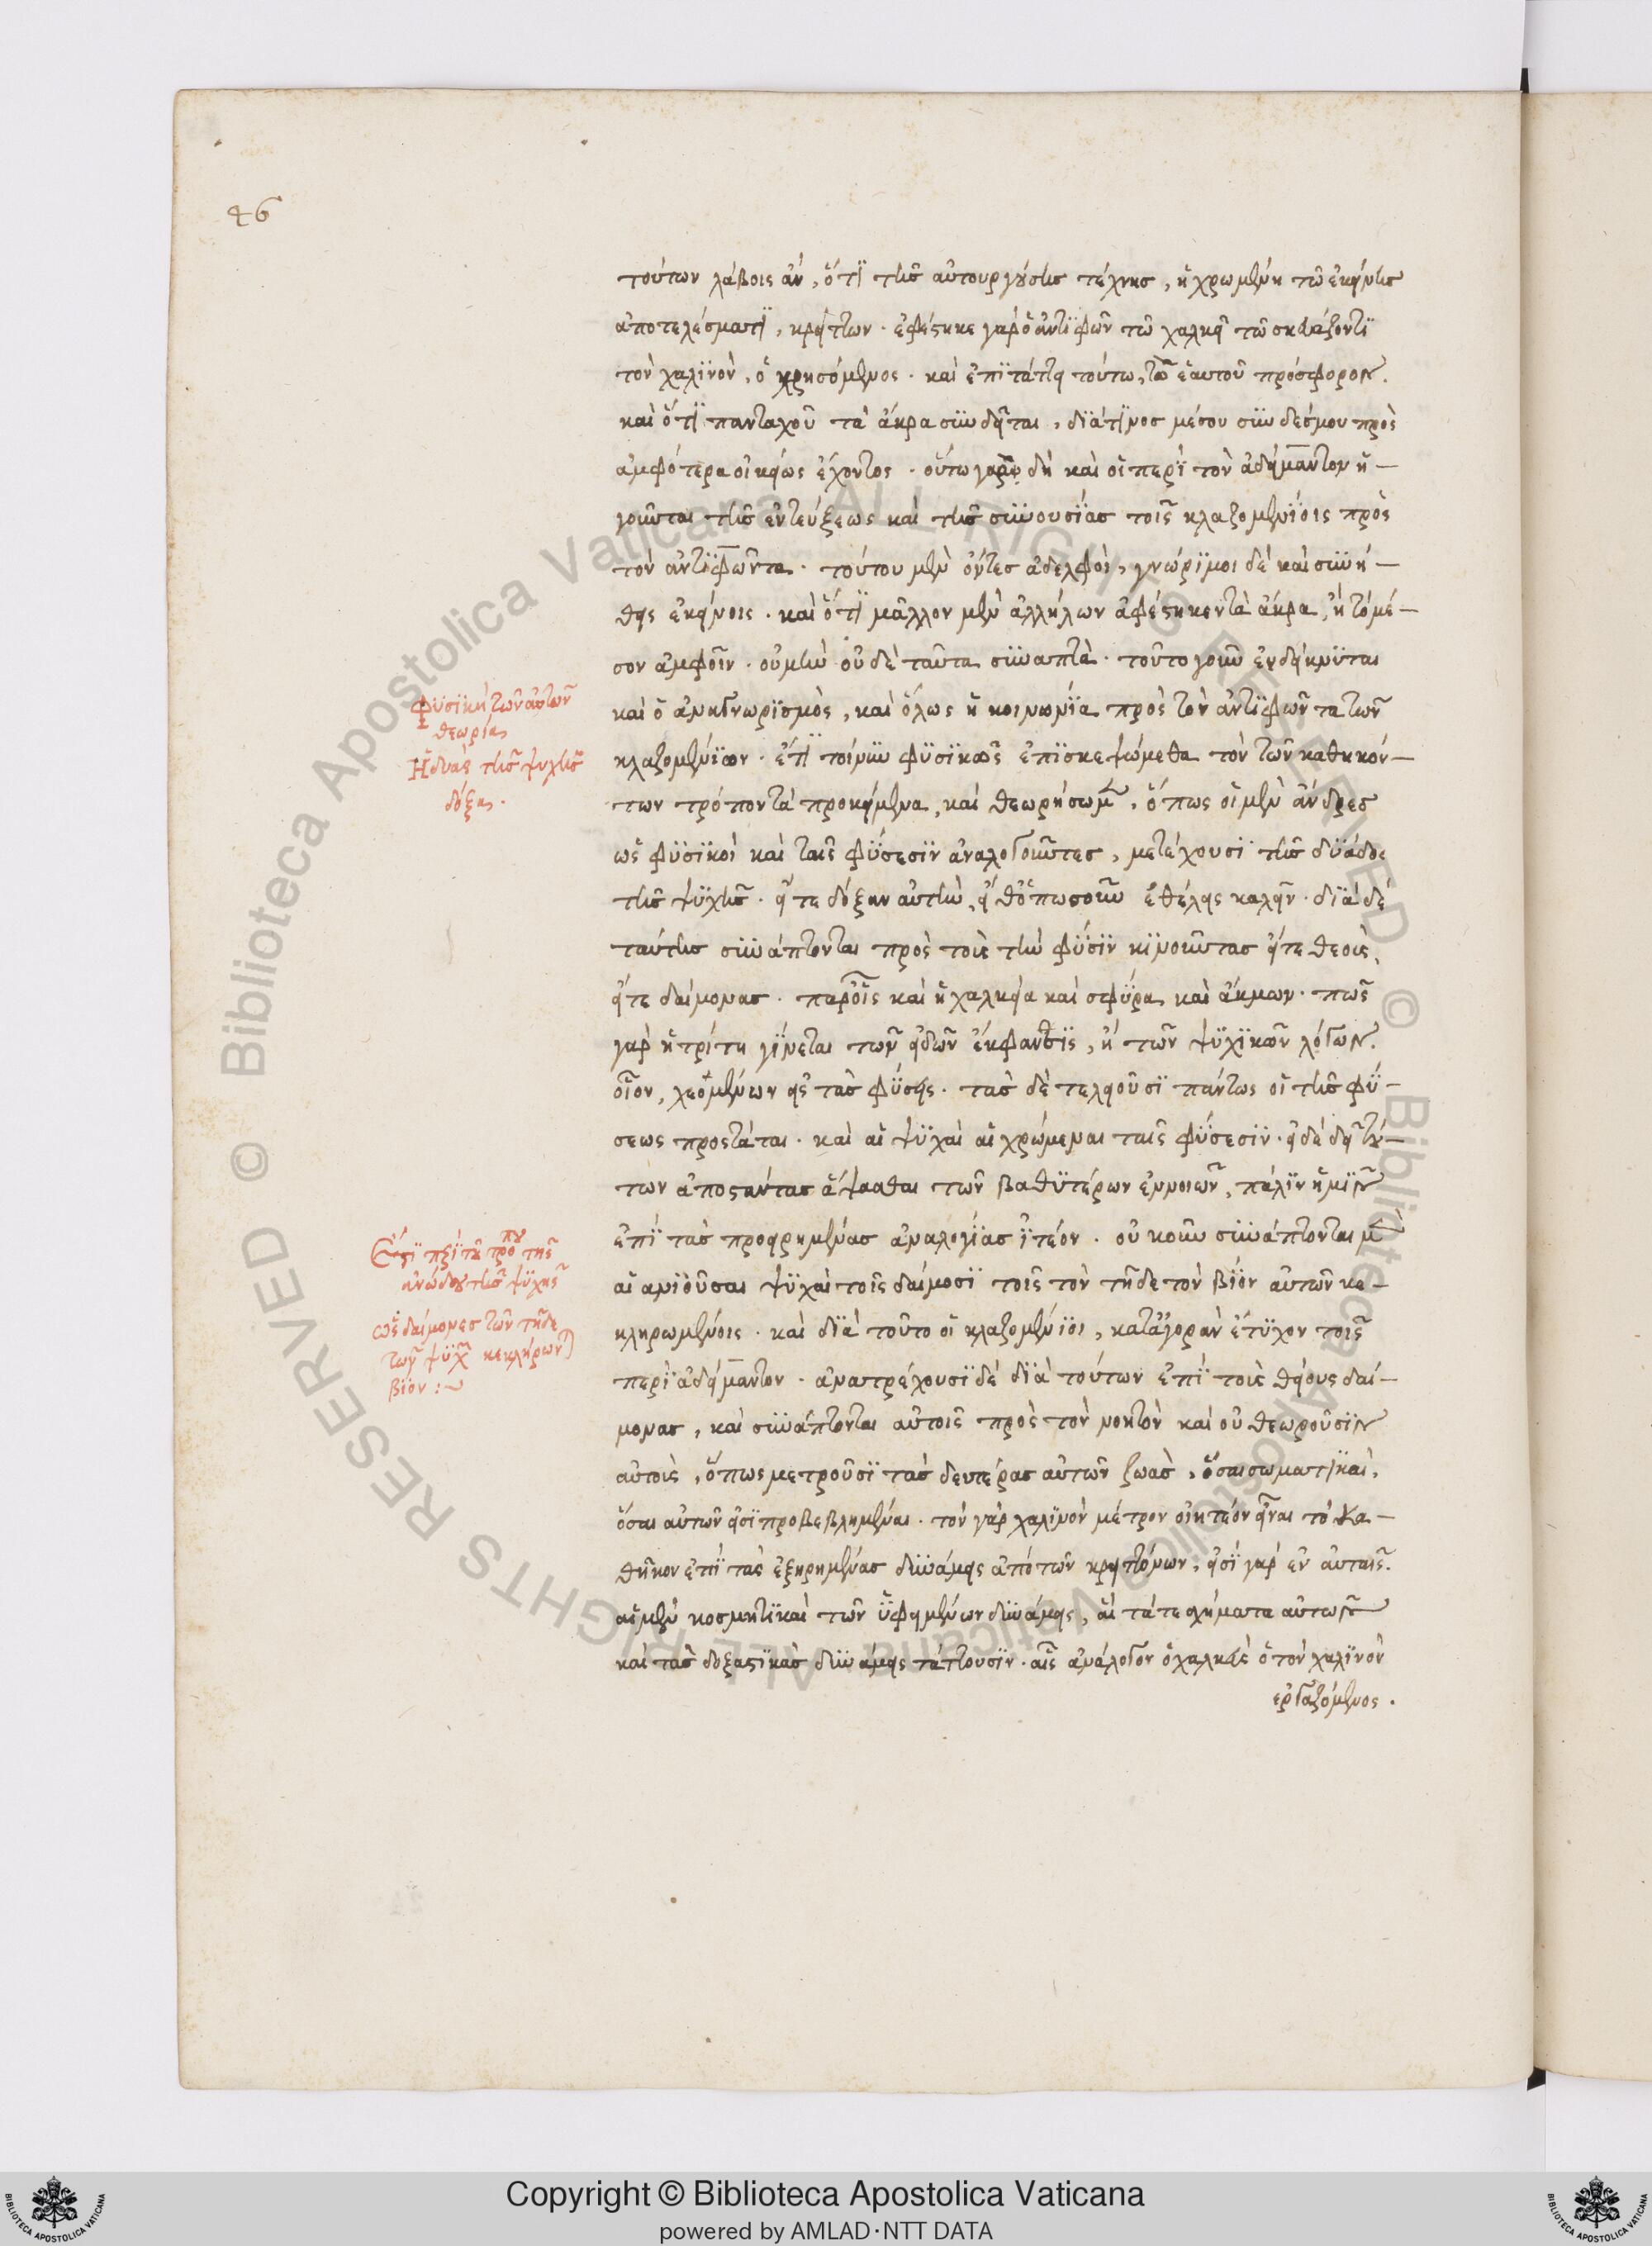 46
τούτων λάβοις ἄν, ὅτι τῆς αὐτουργούσης τέχνης, ἡ χρωμένη τῶ ἐκείνης
ἀποτελέσματι, κρείττων. ἐφέστηκε γὰρ ὁ ἀντιφῶν τῶ χαλκεῖ τῶ σκευάζοντι
τὸν χαλινὸν, ὁ χρησόμενος. καὶ ἐπιτάττει τούτω, τὸ ἑαυτοῦ πρόσφορον.
καὶ ὅτι πανταχοῦ τὰ ἄκρα συνδεῖται, διά τινος μέσου συνδέσμου πρὸς
ἀμφότερα οἰκείως ἔχοντος. οὕτω γὰρ δὴ καὶ οἱ περὶ τὸν ἀδείμαντον ἡ-
γοῦνται τῆς ἐντεύξεως καὶ τῆς συνουσίας τοῖς κλαζομενίοις πρὸς
τὸν ἀντιφῶντα. τούτου μὲν ὄντες ἀδελφοὶ, γνώριμοι δὲ καὶ συνή-
θεις ἐκείνοις. καὶ ὅτι μᾶλλον μὲν ἀλλήλων ἀφέστηκεν τὰ ἄκρα, ἢ τὸ μέ-
σον ἀμφοῖν. οὐ μὴν οὐδὲ ταῦτα συναπτὰ. τοῦτο γοῦν ἐνδείκνυται
καὶ ὁ ἀναγνωρισμὸς, καὶ ὅλως ἡ κοινωνία πρὸς τὸν ἀντιφῶντα τῶν
κλαζομενίων. ἔτι τοίνυν φυσικῶς ἐπισκεψώμεθα τὸν τῶν καθηκόν-
των τρόπον τὰ προκείμενα, καὶ θεωρήσωμεν, ὅπως οἱ μὲν ἄνδρες
ὡς φυσικοὶ καὶ ταῖς φύσεσιν ἀναλογοῦντες, μετέχουσι τῆς δυάδος
τῆς ψυχῆς. εἴτε δόξην αὐτὴν, εἴθ' ὅπωσοῦν ἐθέλεις καλεῖν. διὰ δὲ
ταύτης συνάπτονται πρὸς τοὺς τὴν φύσιν κινοῦντας εἴτε θεοὺς,
εἴτε δαίμονας. παρ' οἷς καὶ ἡ χαλκεία καὶ σφύρα καὶ ἄκμων. πῶς
γὰρ ἡ τρίτη γίνεται τῶν εἰδῶν ἔκφανσις, ἢ τῶν ψυχικῶν λόγων.
οἷον, χεομένων εἰς τὰς φύσεις. τὰς δὲ τελειοῦσι πάντως οἱ τῆς φύ-
σεως προστάται. καὶ αἱ ψυχαὶ αἱ χρώμεναι ταῖς φύσεσιν. εἰ δὲ δεῖ τού-
των ἀποστάντας ἅψασθαι τῶν βαθυτέρων ἐννοιῶν, πάλιν ἡμῖν
ἐπὶ τὰς προειρημένας ἀναλογίας ἰτέον. οὐκοῦν συνάπτονται μὲν
αἱ ἀνιοῦσαι ψυχαὶ τοῖς δαίμοσι τοῖς τὸν τῆδε τὸν βίον αὐτῶν κε-
κληρωμένοις. καὶ διὰ τοῦτο οἱ κλαζομένιοι, κατ' ἀγορὰν ἔτυχον τοῖς
περὶ ἀδείμαντον. ἀνατρέχουσι δὲ διὰ τούτων ἐπὶ τοὺς θείους δαί-
μονας, καὶ συνάπτονται αὐτοῖς πρὸς τὸν νοητὸν καὶ οὐ θεωροῦσιν
αὐτοὺς, ὅπως μετροῦσι τὰς δευτέρας αὐτῶν ζωὰς, ὅσαι σωματικαὶ,
ὅσαι αὐτῶν εἰσι προβεβλημέναι. τὸν γὰρ χαλινὸν μέτρον οἰητέον εἶναι τὸ κα-
θῆκον ἐπὶ τὰς ἐξηρημένας δυνάμεις ἀπὸ τῶν κρειττόνων, εἰσὶ γὰρ ἐν αὐταῖς.
αἱ μὲν κοσμητικαὶ τῶν ὑφειμένων δυνάμεις, αἳ τά τε σχήματα αὐτῶν
καὶ τὰς δοξαστικὰς δυνάμεις τάττουσιν. αἷς ἀνάλογον ὁ χαλκεὺς ὁ τὸν χαλινὸν
ἐργαζόμενος.
Φυσικὴ τῶν αὐτῶν
θεωρία
Ἡ δυὰς τῆς ψυχῆς
δόξα.
ἀνόδου τῆς ψυχῆς
ὡς δαίμονες τῶν τῆδε
τῶν ψυχῶν κεκλήρωνται
βίον :~